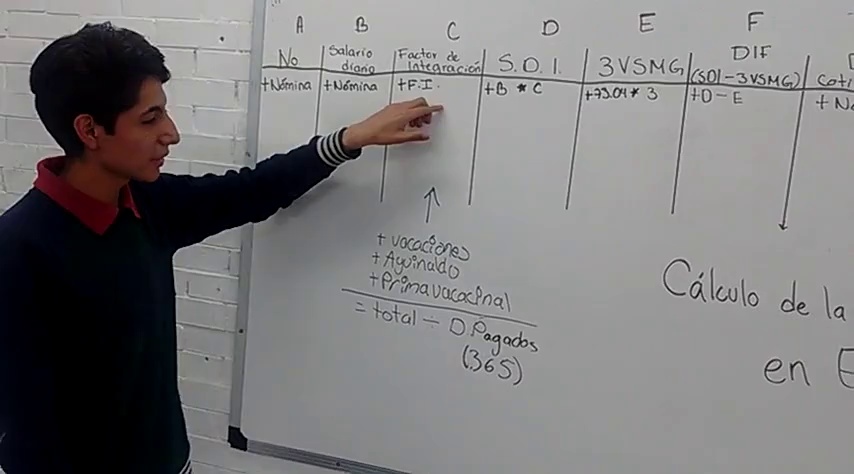 A B C D E F
No Salario diario Factor de Integración S.D.I. 3VSMG DIF (SDI-3VSMG) Coti
+Nómina +Nómina +F.I. +B * C +73.04 * 3 +D-E + No
+ vacaciones
+ Aguinaldo
+Prima vacacinal
= total ÷ D.Pagados
(365)
Cálculo de la
en E